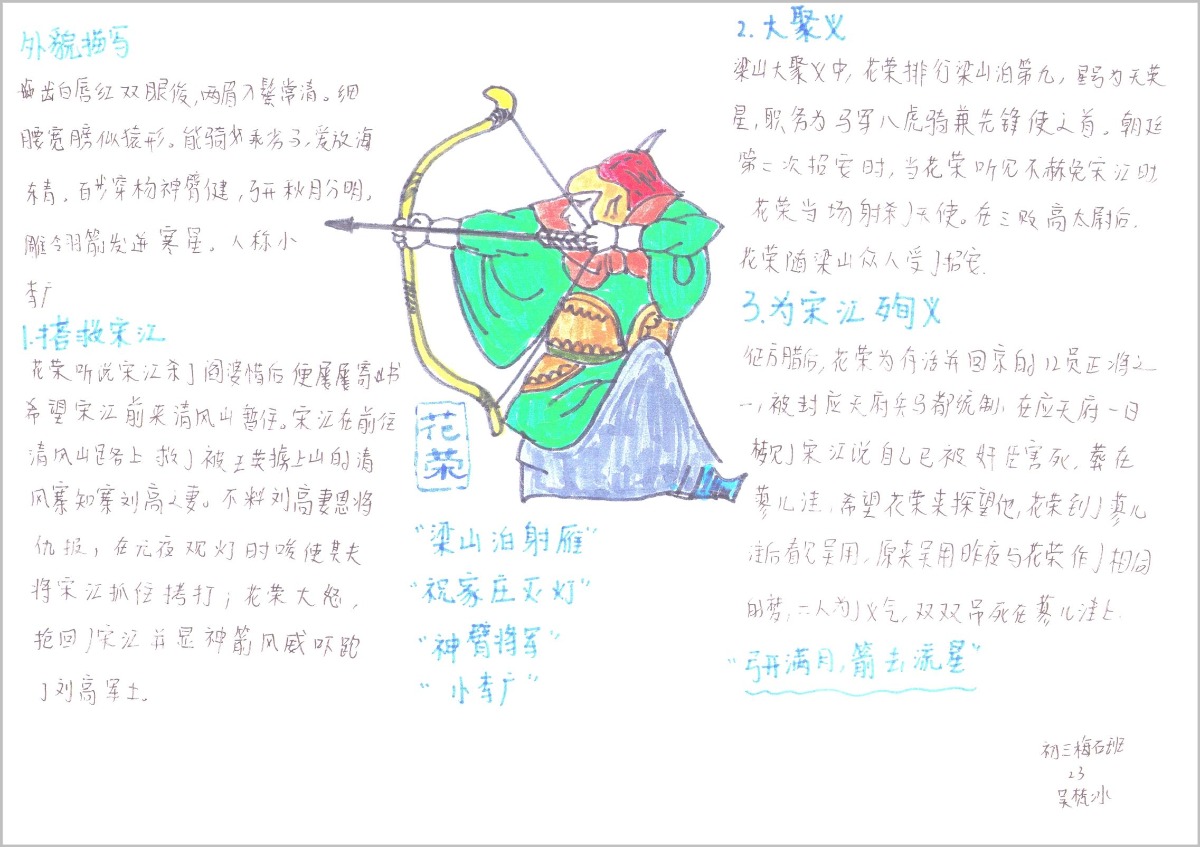 外貌描写
齿白唇红双眼俊,两眉入鬓常清。细
腰宽膀似猿形。能骑乖劣马,爱放海
东青。百步穿杨神臂健,弓开秋月分明。
雕翎箭发迸寒星。人称小
李广
1.搭救宋江
花荣听说宋江杀了阎婆惜后便屡屡寄书
希望宋江前来清风山暂住。宋江在前往
清风山路上救了被王英掳上山的清
风寨知寨刘高之妻。不料刘高妻恩将
仇报,在元夜观灯时唆使其夫
将宋江抓住拷打;花荣大怒,
抢回了宋江并显神箭风威吓跑
了刘高军士。
花
荣
“梁山泊射雁”
“祝家庄灭灯”
“神臂将军”
“小李广”
2.大聚义
梁山大聚义中,花荣排行梁山泊第九,星号为天英
星,职务为马军八虎骑兼先锋使之首。朝廷
第二次招安时,当花荣听见不赦免宋江时
花荣当场射杀了天使。在三败高太尉后.
花荣随梁山众人受了招安.
3.为宋江殉义
征方腊后,花荣为存活并回京的12员正将之
一,被封应天府兵马都统制.在应天府一日
梦见了宋江说自己已被奸臣害死,葬在
蓼儿洼,希望花荣来探望他,花荣到了蓼儿
洼后看见吴用,原来吴用昨夜与花荣作了相同
的梦,二人为了义气,双双吊死在蓼儿洼上.
“弓开满月,箭去流星”
初三梅石班
23
吴梳冰